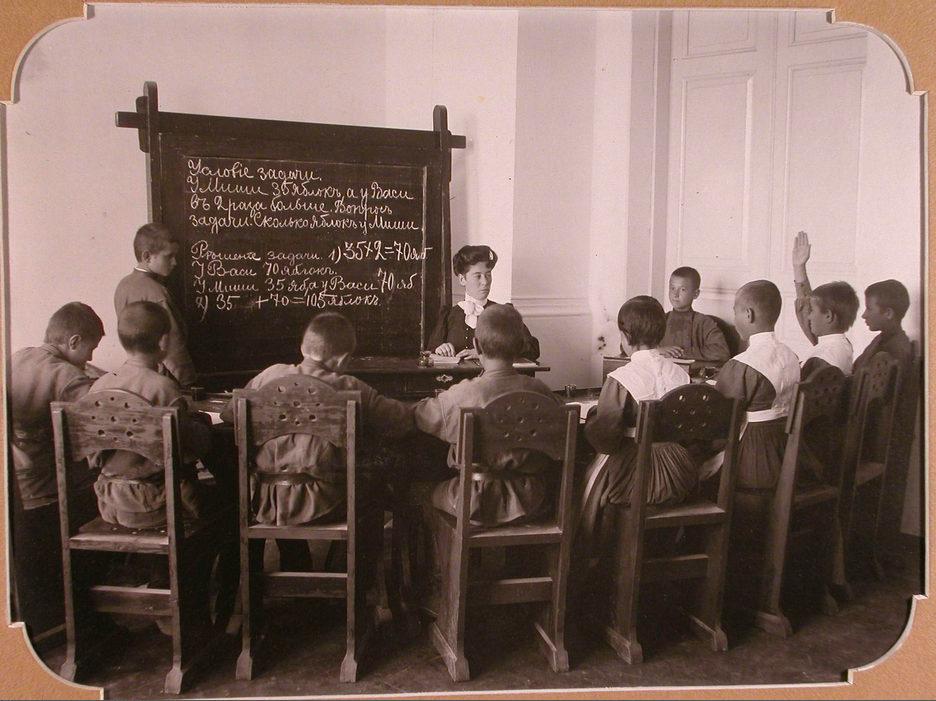 Условіе задачи.
У Миши 35 яблокъ, а у Васи
въ 2 раза больше. Вопросъ
задачи: Сколько яблокъ у Миши
Рѣшение задачи. 1) 35×2=70 яб
У Васи 70 яблокъ.
У Миши 35 яб, а у Васи 70 яб
2) 35 + 70 = 105 яблокъ